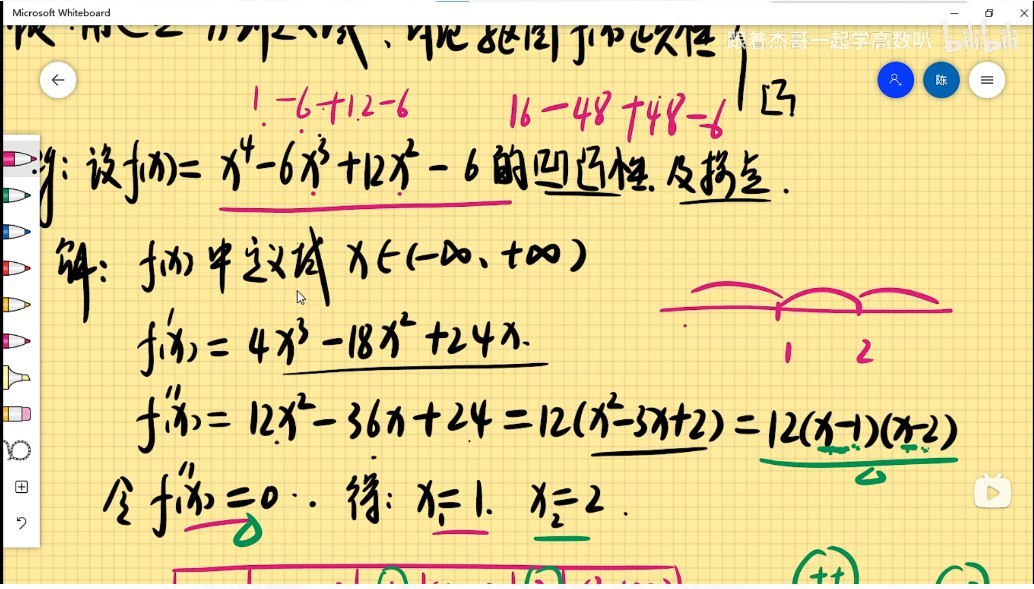 Microsoft Whiteboard
跟着杰哥一起学高数叭 bilibili
陈
凸
1-6+12-6
16-48+48-6
例: 设f(x)= x⁴-6x³+12x²-6 的凹凸性 及拐点.
解: f(x)中定义域 x∈(-∞、+∞)
f'(x)= 4x³-18x²+24x.
1 2
f''(x)= 12x²-36x+24 =12(x²-3x+2) =12(x-1)(x-2)
令 f''(x)=0. 得: x₁=1. x₂=2.
++